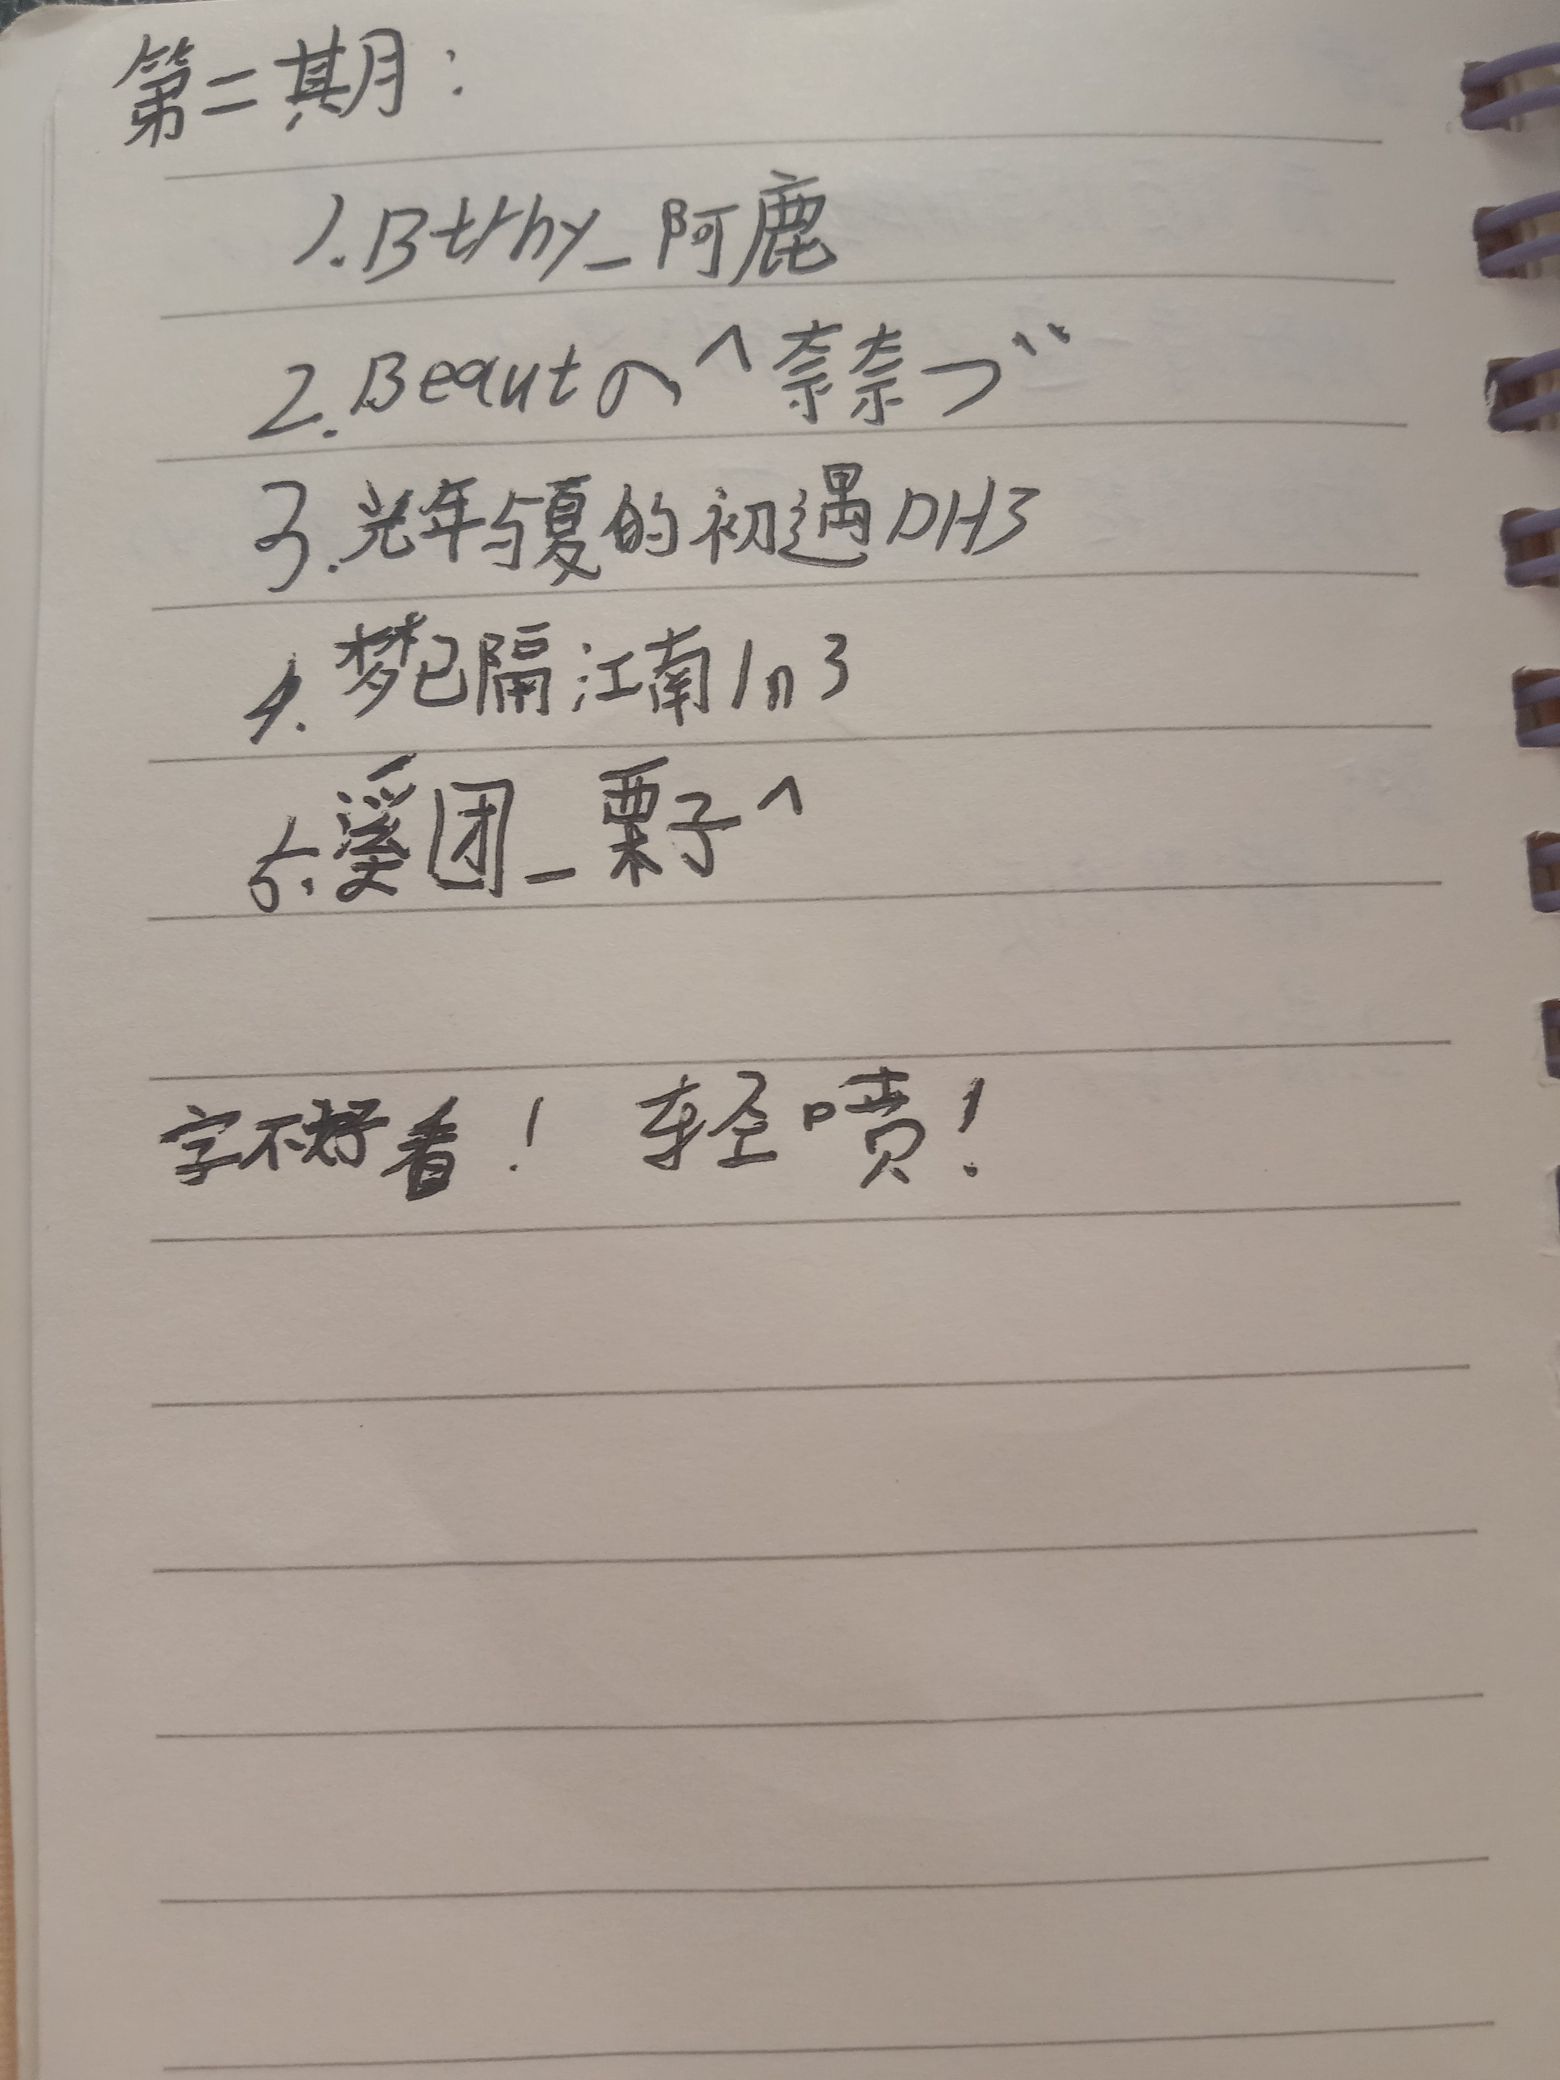 第二期：
1.Btrhy_阿鹿
2.Beautの^奈奈づ
3.光年与夏的初遇DH3
4.梦已隔江南ln3
5.溪团_栗子^
字不好看！ 轻喷！